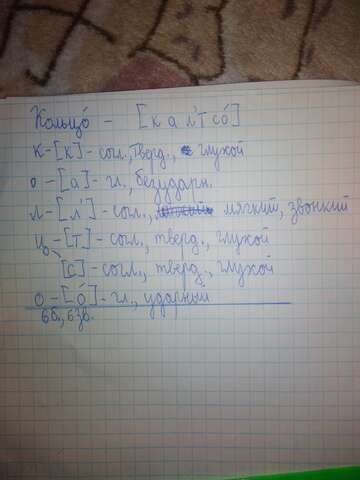 Кольцо́ - [к а л'т со́]
к-[к]-согл., тверд., глухой
о-[а]-гл., безударн.
л-[л']-согл., мягкий, звонкий
ц-[т]-согл., тверд., глухой
[с]-согл., тверд., глухой
о-[о́]-гл., ударный
6б., 6зв.